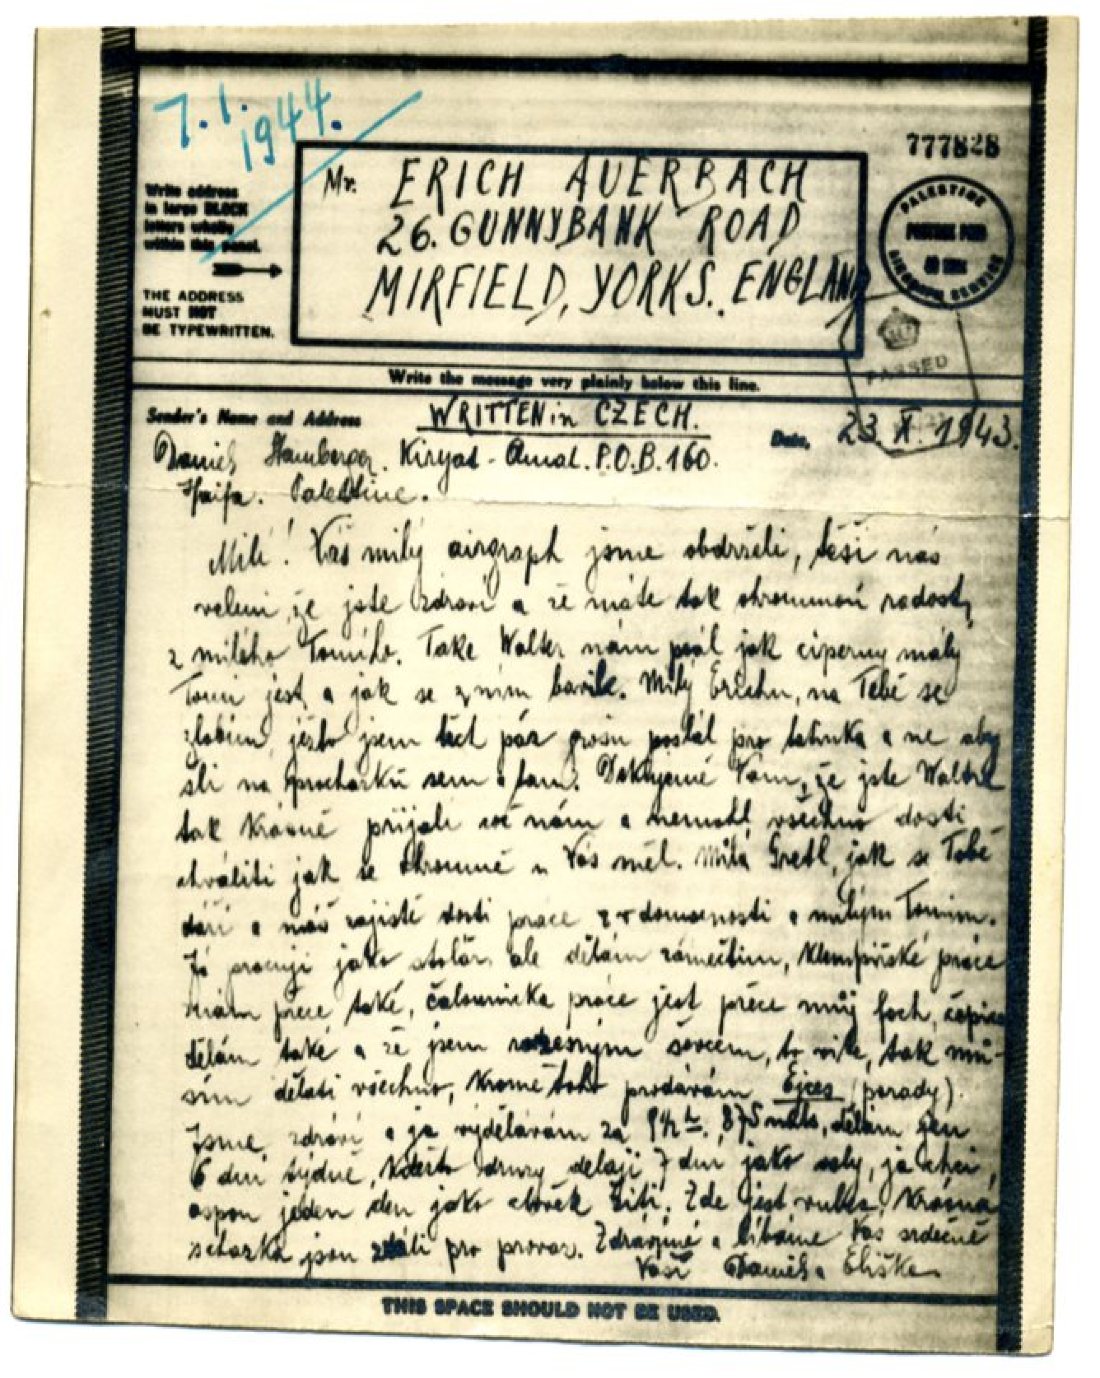 7. 1. 1944.
777828
Write address
in large BLOCK
letters wholly
within this panel.
THE ADDRESS
MUST NOT
BE TYPEWRITTEN.
Mr. ERICH AUERBACH
26. GUNNYBANK ROAD
MIRFIELD, YORKS. ENGLAND
PALESTINE
POSTAGE PAID
AIRGRAPH SERVICE
PASSED
Write the message very plainly below this line.
Sender's Name and Address
WRITTEN in CZECH.
Date, 23. X. 1943.
Daniel Hamberger. Kiryat - Amal. P.O.B. 160.
Haifa. Palestine.
Milí! Váš milý airgraph jsme obdrželi, těší nás
velmi, že jste zdraví a že máte tak ohromnou radost
z milého Tomího. Take Walter nám psal jak čiperny malý
Tomi jest a jak se z ním bavil. Milý Erichu, na Tebe se
zlobím, jsem těch pár grošu poslal pro a ne aby
šli na procházku sem a tam. Děkujeme Vám, že jste Waltra
tak krásně přijali nám a nemohl všechno dosti
chváliti jak se ohromně u Vás měl. Milá Gretl, jak se Tobě
daří a máš zajisté dosti práce z domacnosti a milým Tomim.
Já pracuji jako stolář ale dělám klempířské práce
mám také, čalounicka práce jest přece můj fach,
dělám také a že jsem ševcem, to víte, tak mu-
sím dělati všechno, kromě toho prodávám Ejces (porady).
Jsme zdraví a já vydělávám za 875 mils, dělám jen
6 dní týdně, druzy delají 7 dní jako osly, já chci
aspon jeden den jako člověk žíti. Zde jest
jsou pro provoz. Zdravíme a líbáme Vás srdečně
Vaši Daniel a Eliška
THIS SPACE SHOULD NOT BE USED.